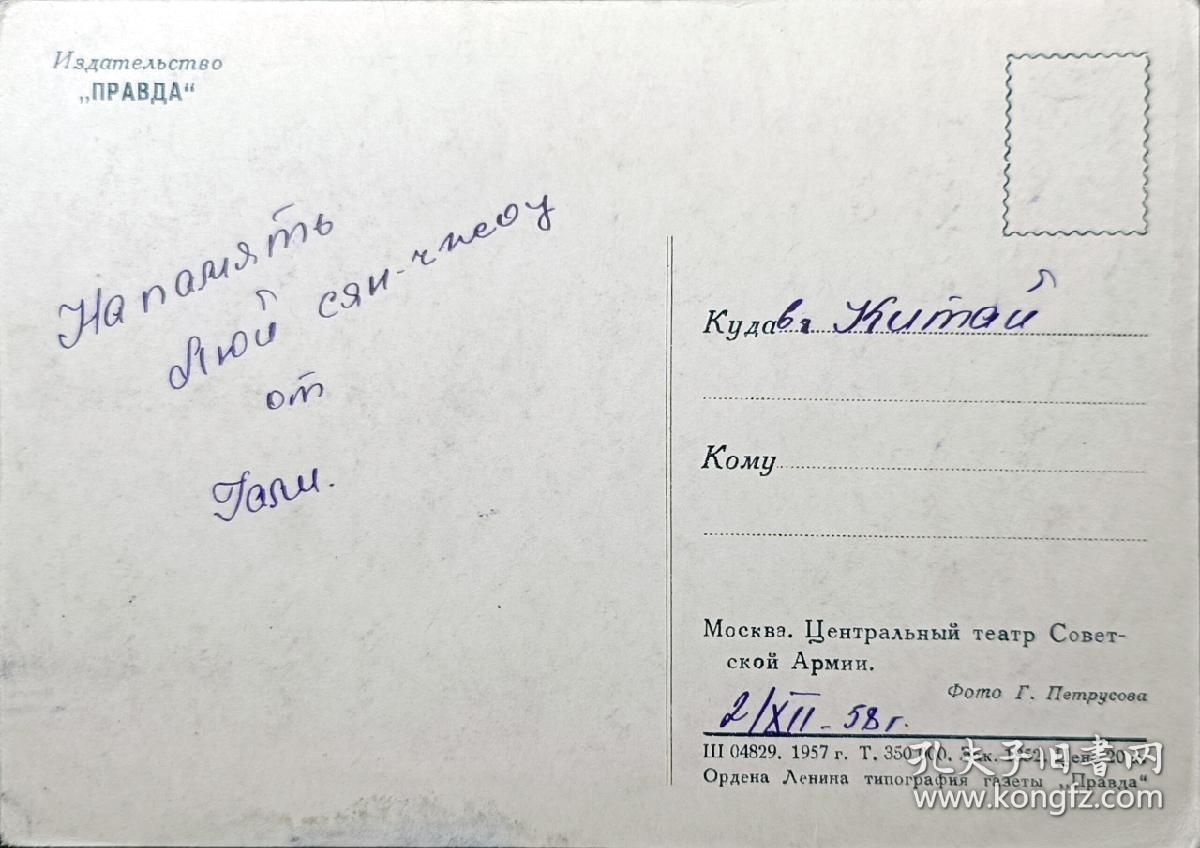 Издательство
„ПРАВДА“
На память
Люй сян-чжоу
от
Гали.
Куда в г. Китай
Кому
Москва. Центральный театр Совет-
ской Армии.
Фото Г. Петрусова
2/XII - 58 г.
Ш 04829. 1957 г. Т. 350 000. Зак.
Ордена Ленина типография газеты „Правда“
孔夫子旧书网
www.kongfz.com